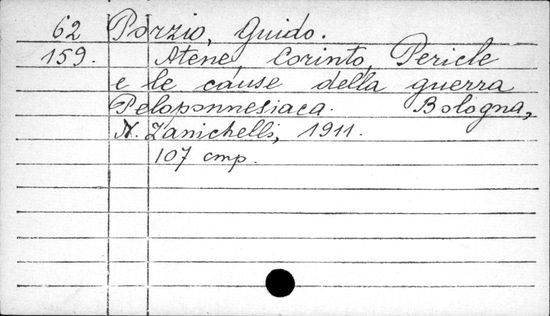 62 Porzio, Guido.
159. Atene, Corinto, Pericle
e le cause della guerra
Peloponnesiaca. Bologna,
N. Zanichelli, 1911.
107 стр.